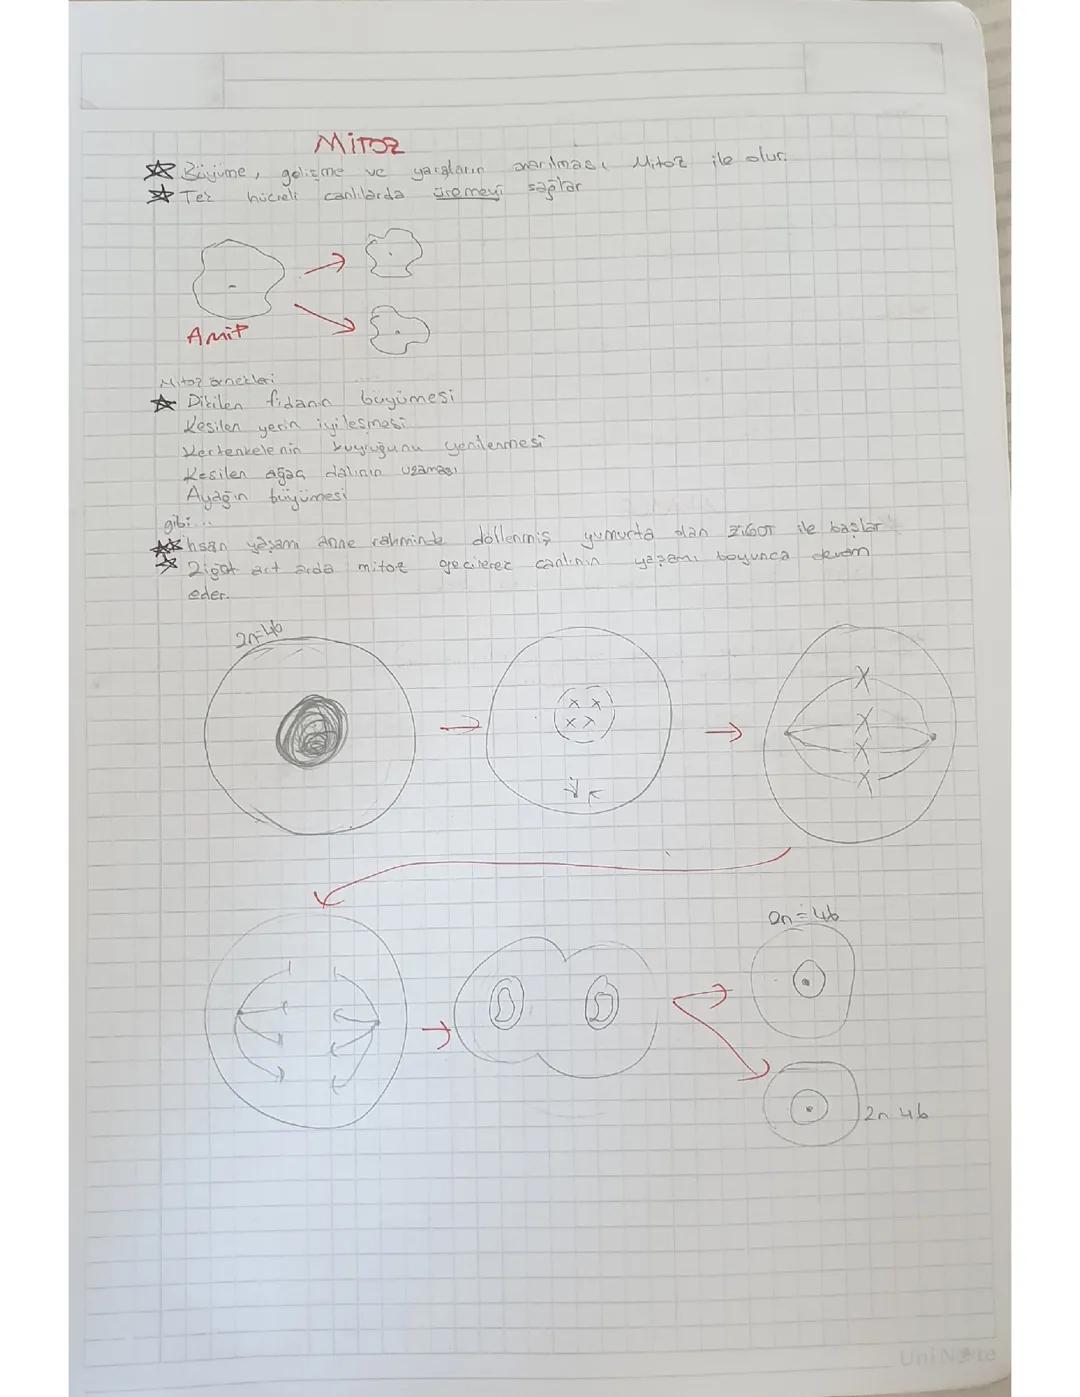 MİTOZ
Büyüme, gelişme ve yaraların onarılması Mitoz ile olur.
Tek hücreli canlılarda üremeyi sağlar
Amip
Mitoz örnekleri
Dikilen fidanın büyümesi
Kesilen yerin iyileşmesi
Kertenkelenin kuyruğunu yenilenmesi
Kesilen ağaç dalının uzaması
Ayağın büyümesi
gibi...
İnsan yaşamı Anne rahminde döllenmiş yumurta olan ZİGOT ile başlar
Zigot art arda mitoz geçirerek canlının yaşamı boyunca devam
eder.
2n=46
2n=46
2n 46
UniNote